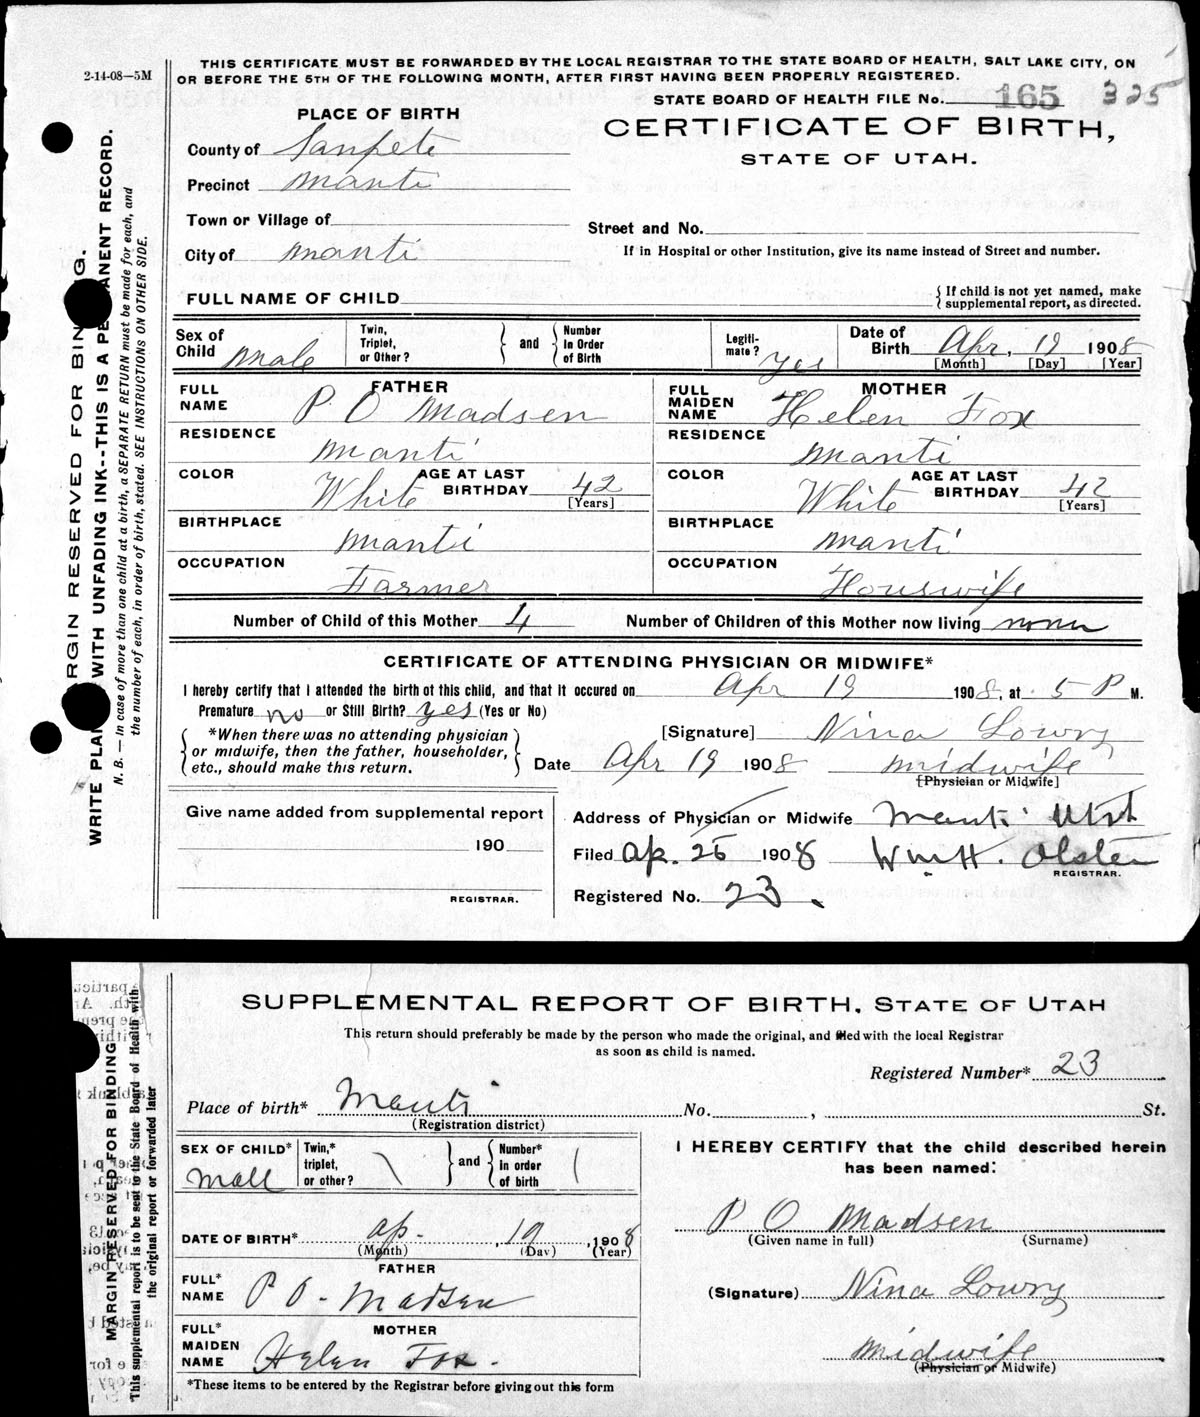 2-14-08—5M
THIS CERTIFICATE MUST BE FORWARDED BY THE LOCAL REGISTRAR TO THE STATE BOARD OF HEALTH, SALT LAKE CITY, ON
OR BEFORE THE 5TH OF THE FOLLOWING MONTH, AFTER FIRST HAVING BEEN PROPERLY REGISTERED.
STATE BOARD OF HEALTH FILE No. 165 325
PLACE OF BIRTH
CERTIFICATE OF BIRTH,
STATE OF UTAH.
County of Sanpete
Precinct Manti
Town or Village of
Street and No.
City of Manti
If in Hospital or other Institution, give its name instead of Street and number.
FULL NAME OF CHILD
{ If child is not yet named, make
supplemental report, as directed.
Sex of Child Male
Twin, Triplet, or Other?
and
Number in Order of Birth
Legiti-mate? Yes
Date of Birth Apr, 19 1908
[Month] [Day] [Year]
FATHER
FULL NAME P O Madsen
MOTHER
FULL MAIDEN NAME Helen Fox
RESIDENCE Manti
RESIDENCE Manti
COLOR White AGE AT LAST BIRTHDAY 42 [Years]
COLOR White AGE AT LAST BIRTHDAY 42 [Years]
BIRTHPLACE Manti
BIRTHPLACE Manti
OCCUPATION Farmer
OCCUPATION Houswife
Number of Child of this Mother 4 Number of Children of this Mother now living none
CERTIFICATE OF ATTENDING PHYSICIAN OR MIDWIFE*
I hereby certify that I attended the birth of this child, and that it occured on Apr 19 1908, at 5 P M.
Premature no or Still Birth? yes (Yes or No)
*When there was no attending physician
or midwife, then the father, householder,
etc., should make this return.
[Signature] Nina Lowry
Date Apr 19 1908 midwife
[Physician or Midwife]
Give name added from supplemental report
190
REGISTRAR.
Address of Physician or Midwife Manti Utah
Filed Ap. 25 1908 Wm H. Olsten
REGISTRAR.
Registered No. 23.
MARGIN RESERVED FOR BINDING.
WRITE PLAINLY WITH UNFADING INK--THIS IS A PERMANENT RECORD.
N. B. — In case of more than one child at a birth, a SEPARATE RETURN must be made for each, and
the number of each, in order of birth, stated. SEE INSTRUCTIONS ON OTHER SIDE.
SUPPLEMENTAL REPORT OF BIRTH, STATE OF UTAH
This return should preferably be made by the person who made the original, and filed with the local Registrar
as soon as child is named.
Registered Number* 23
Place of birth* Manti No. , St.
(Registration district)
SEX OF CHILD* Mall
Twin,* triplet, or other?
and
Number* in order of birth
I HEREBY CERTIFY that the child described herein
has been named:
P O Madsen
(Given name in full) (Surname)
DATE OF BIRTH* Ap. , 19 , 1908
(Month) (Day) (Year)
FATHER
FULL* NAME P O - Madsen
(Signature) Nina Lowry
MOTHER
FULL* MAIDEN NAME Helen Fox.
midwife
(Physician or Midwife)
*These items to be entered by the Registrar before giving out this form
MARGIN RESERVED FOR BINDING
*This supplemental report is to be sent to the State Board of Health with
the original report or forwarded later